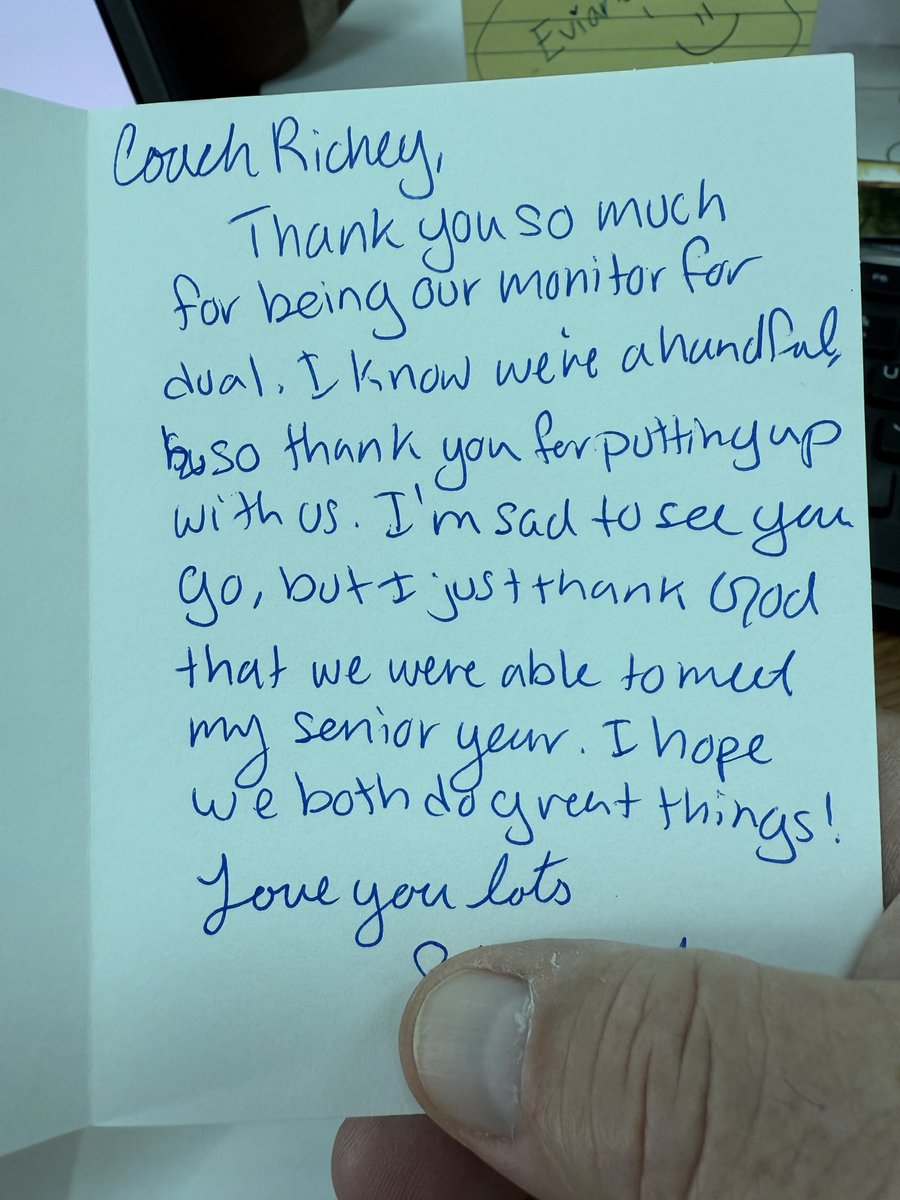 Coach Richey,
Thank you so much
for being our monitor for
dual. I know we're a handful,
so thank you for putting up
with us. I'm sad to see you
go, but I just thank God
that we were able to meet
my senior year. I hope
we both do great things!
Love you lots